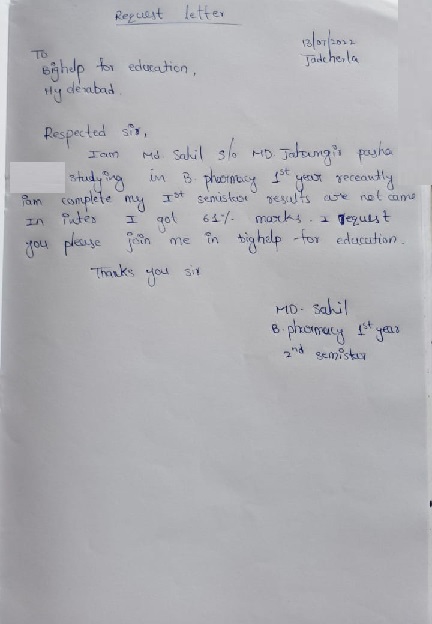 Request letter
13/07/2022
Jadcherla
To
Bighelp for education,
Hyderabad.
Respected sir,
Iam Md. Sahil s/o MD. Jahangir pasha
studying in B. pharmacy 1st year recently
iam complete my Ist semistar results are not came
In inter I got 61% marks. I request
you please join me in bighelp for education.
Thanks you sir
MD. Sahil
B. pharmacy 1st year
2nd semistar